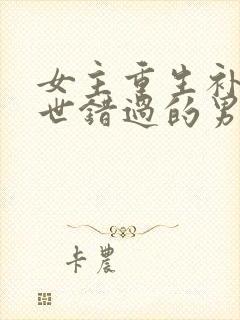 女主重生补
世错过的男
卡农